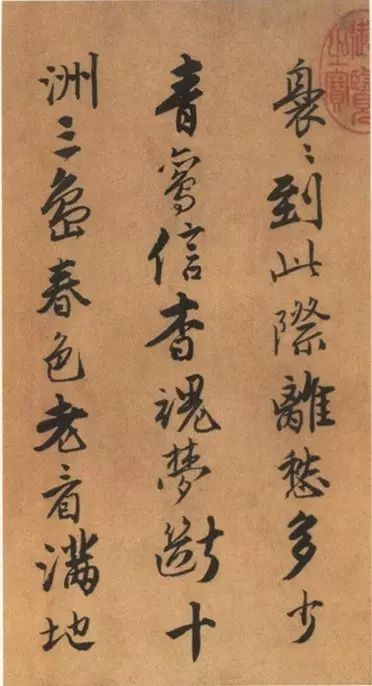 裊〻到此際離愁多少
青鸞信杳魂夢斷十
洲三島春色老看滿地
御覽之寶